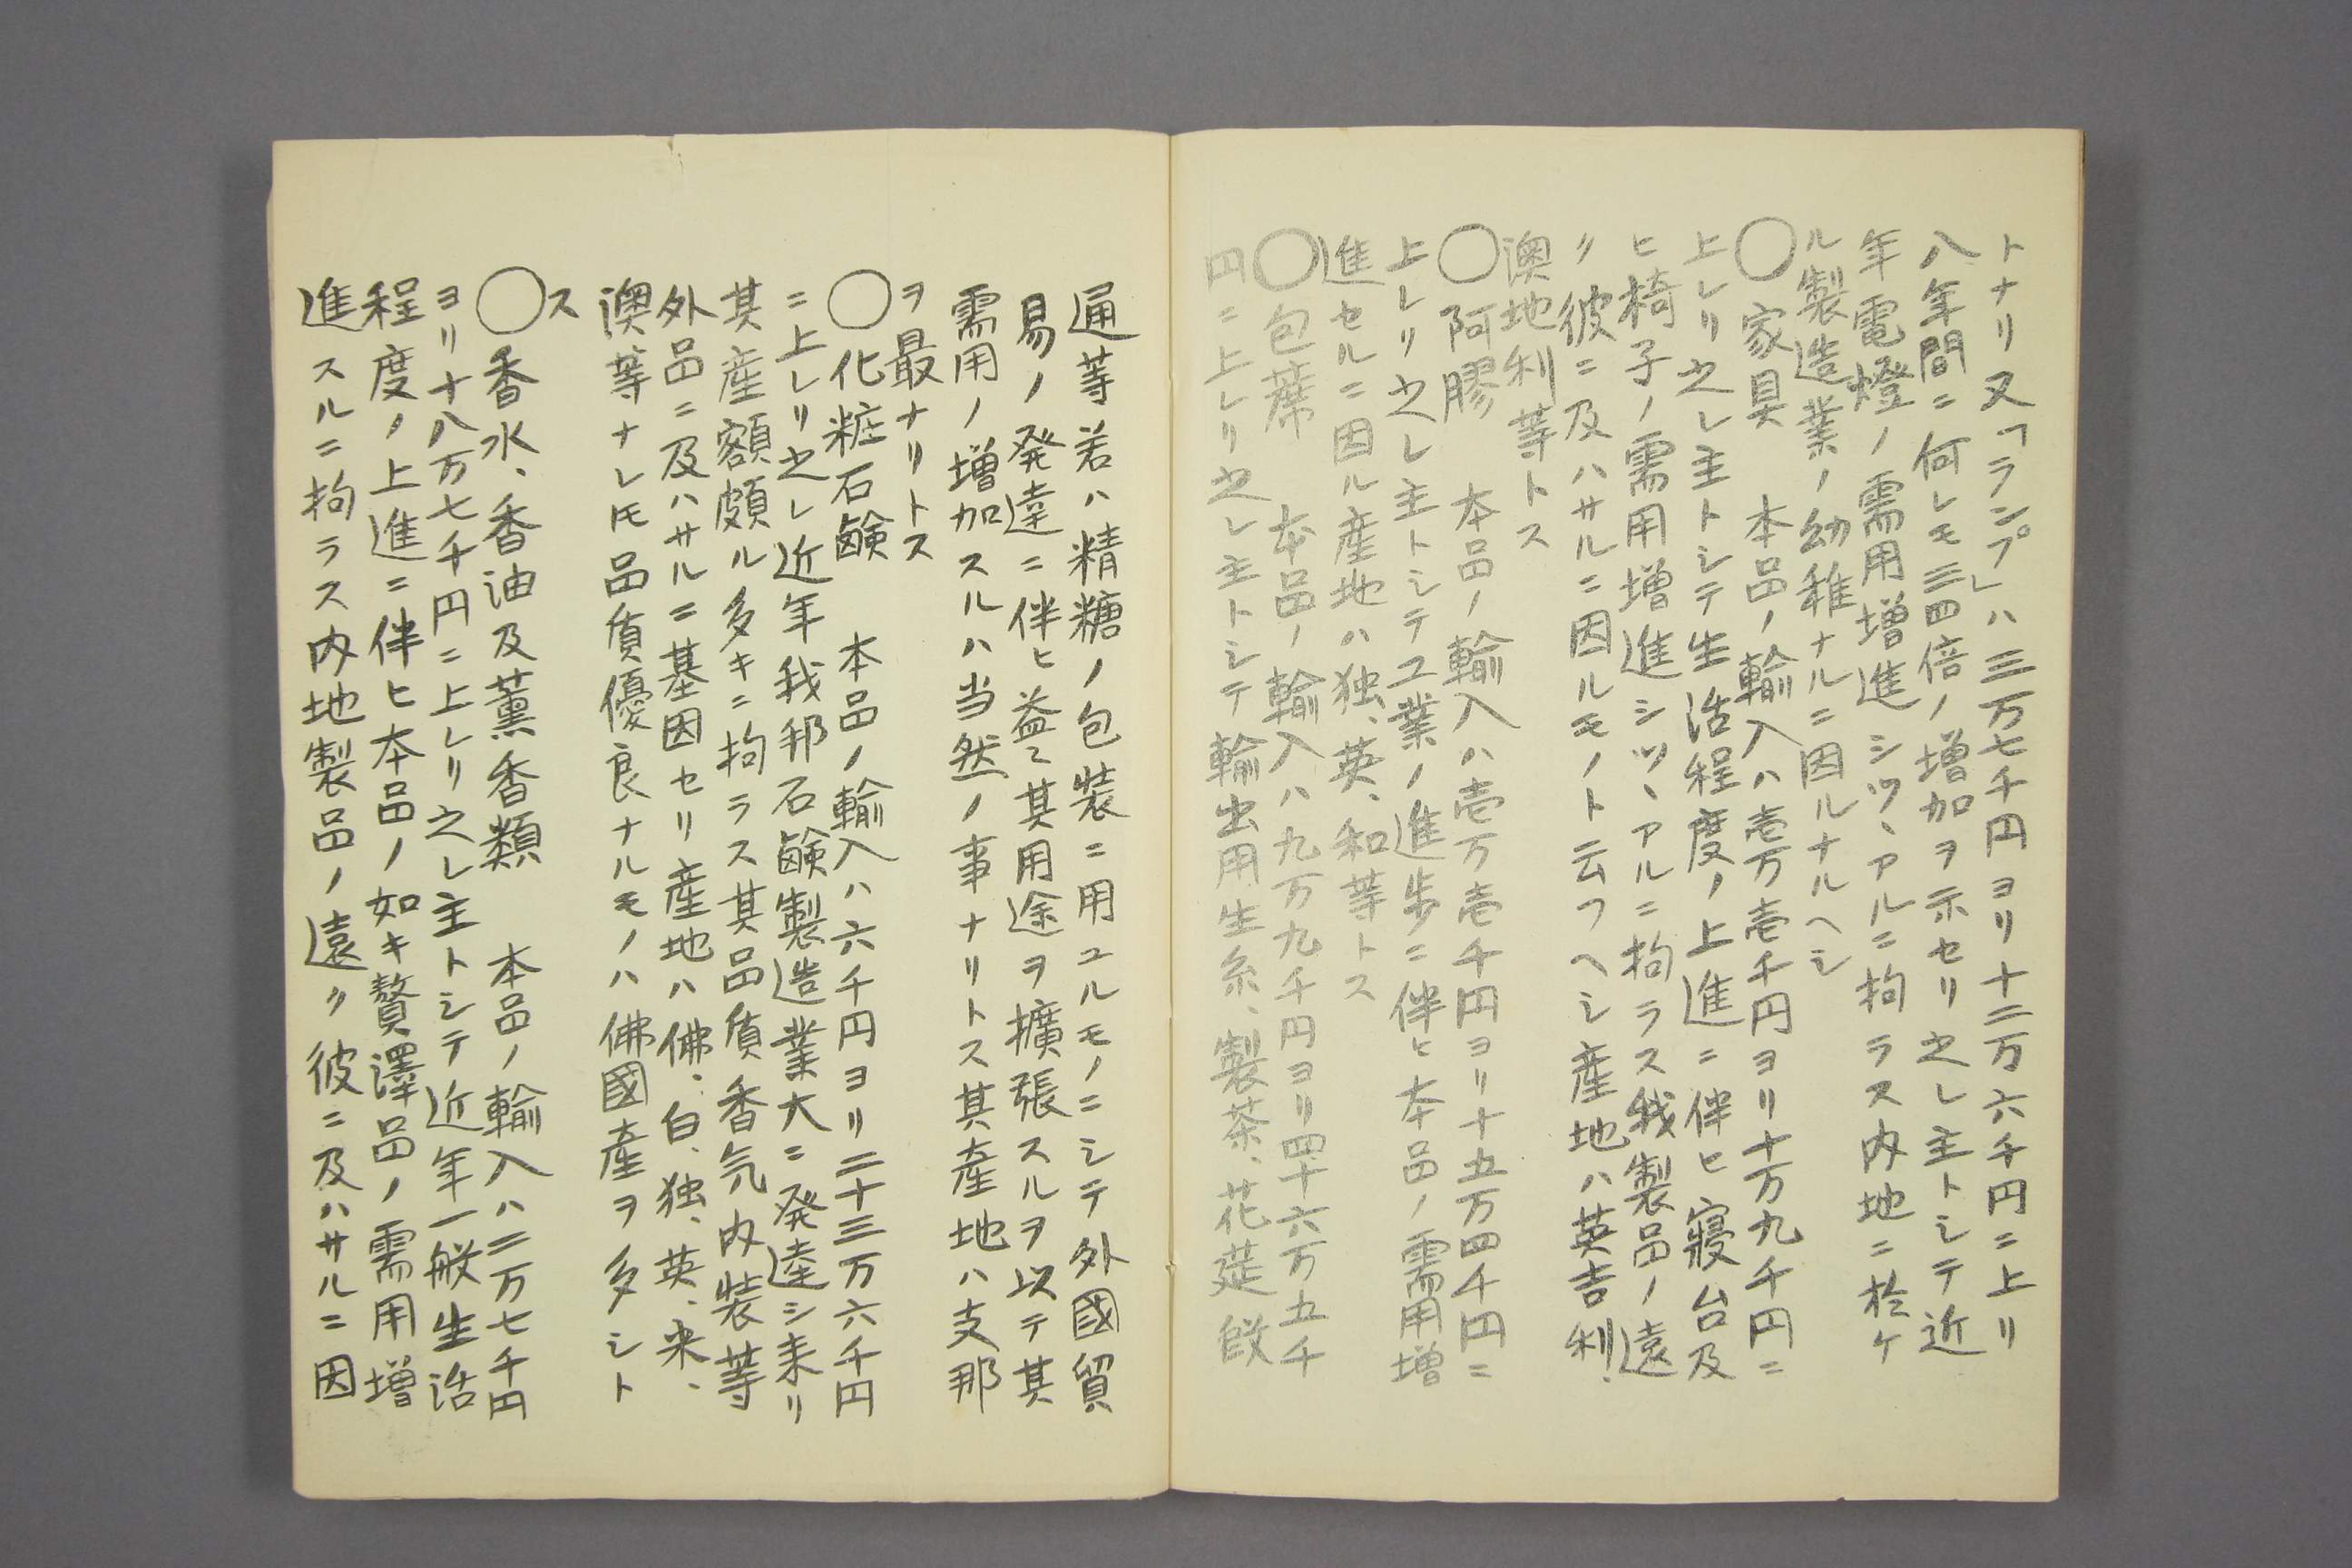 トナリ又「ランプ」ハ三万七千円ヨリ十二万六千円ニ上リ
八年間ニ何レモ三四倍ノ増加ヲ示セリ之レ主トシテ近
年電燈ノ需用増進シツヽアルニ拘ラス内地ニ於ケ
ル製造業ノ幼稚ナルニ因ルナルヘシ
○家具　本品ノ輸入ハ壱万壱千円ヨリ十万九千円ニ
上レリ之レ主トシテ生活程度ノ上進ニ伴ヒ寝台及
ヒ椅子ノ需用増進シツヽアルニ拘ラス我製品ノ遠
ク彼ニ及ハサルニ因ルモノト云フヘシ産地ハ英吉利、
澳地利等トス
○阿膠　本品ノ輸入ハ壱万壱千円ヨリ十五万四千円ニ
上レリ之レ主トシテ工業ノ進歩ニ伴ヒ本品ノ需用増
進セルニ因ル産地ハ独、英、和等トス
○包蓆　本品ノ輸入ハ九万九千円ヨリ四十六万五千
円ニ上レリ之レ主トシテ輸出用生糸、製茶、花莚、段
通等若ハ精糖ノ包装ニ用ユルモノニシテ外國貿
易ノ発達ニ伴ヒ益々其用途ヲ擴張スルヲ以テ其
需用ノ増加スルハ当然ノ事ナリトス其産地ハ支那
ヲ最ナリトス
○化粧石鹸　本品ノ輸入ハ六千円ヨリ二十三万六千円
ニ上レリ之レ近年我邦石鹸製造業大ニ発達シ来リ
其産額頗ル多キニ拘ラス其品質香気内装等
外品ニ及ハサルニ基因セリ産地ハ佛、白、独、英、米、
澳等ナレ𪜈品質優良ナルモノハ佛國産ヲ多シト
ス
○香水、香油及薫香類　本品ノ輸入ハ二万七千円
ヨリ十八万七千円ニ上レリ之レ主トシテ近年一般生活
程度ノ上進ニ伴ヒ本品ノ如キ贅澤品ノ需用増
進スルニ拘ラス内地製品ノ遠ク彼ニ及ハサルニ因